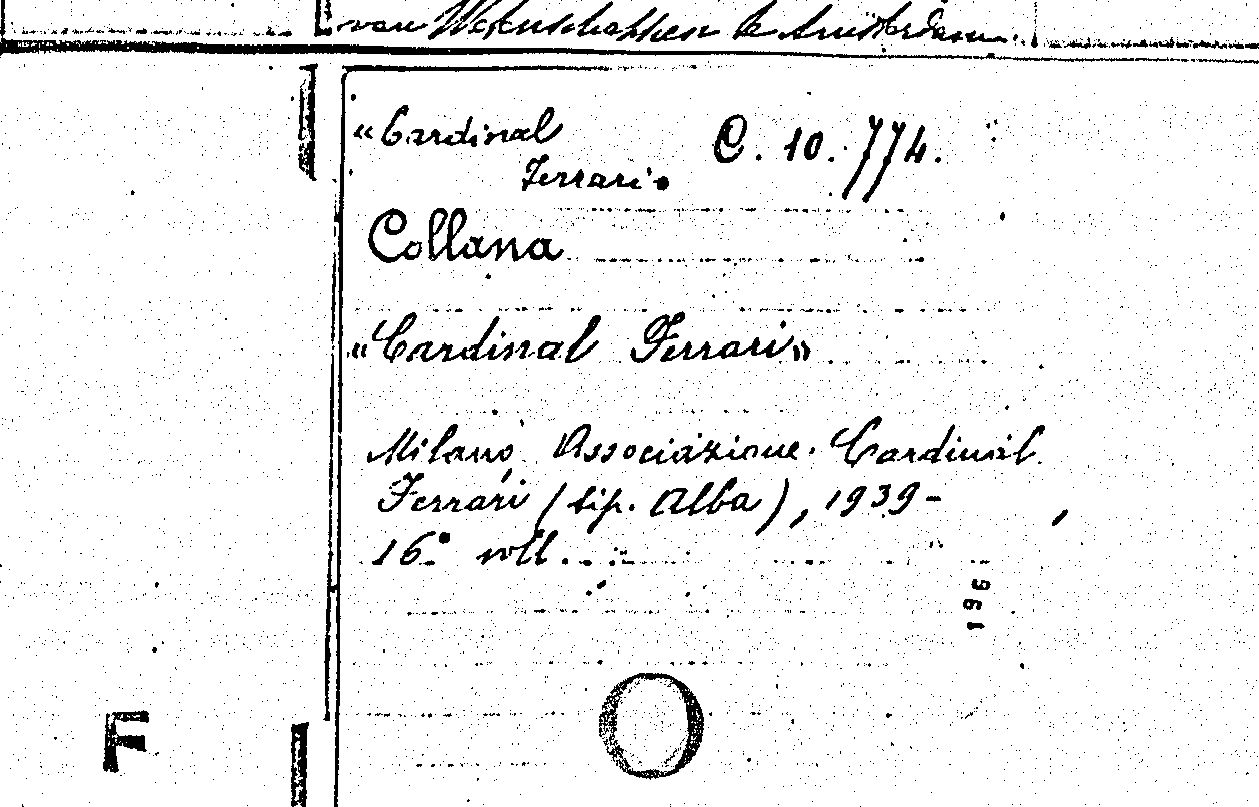 van Wetenschappen te Amsterdam.
«Cardinal C. 10. 774.
Ferrari»
Collana
«Cardinal Ferrari»
Milano, Associazione Cardinal
Ferrari (tip. Alba), 1939-
16° voll...
196
F